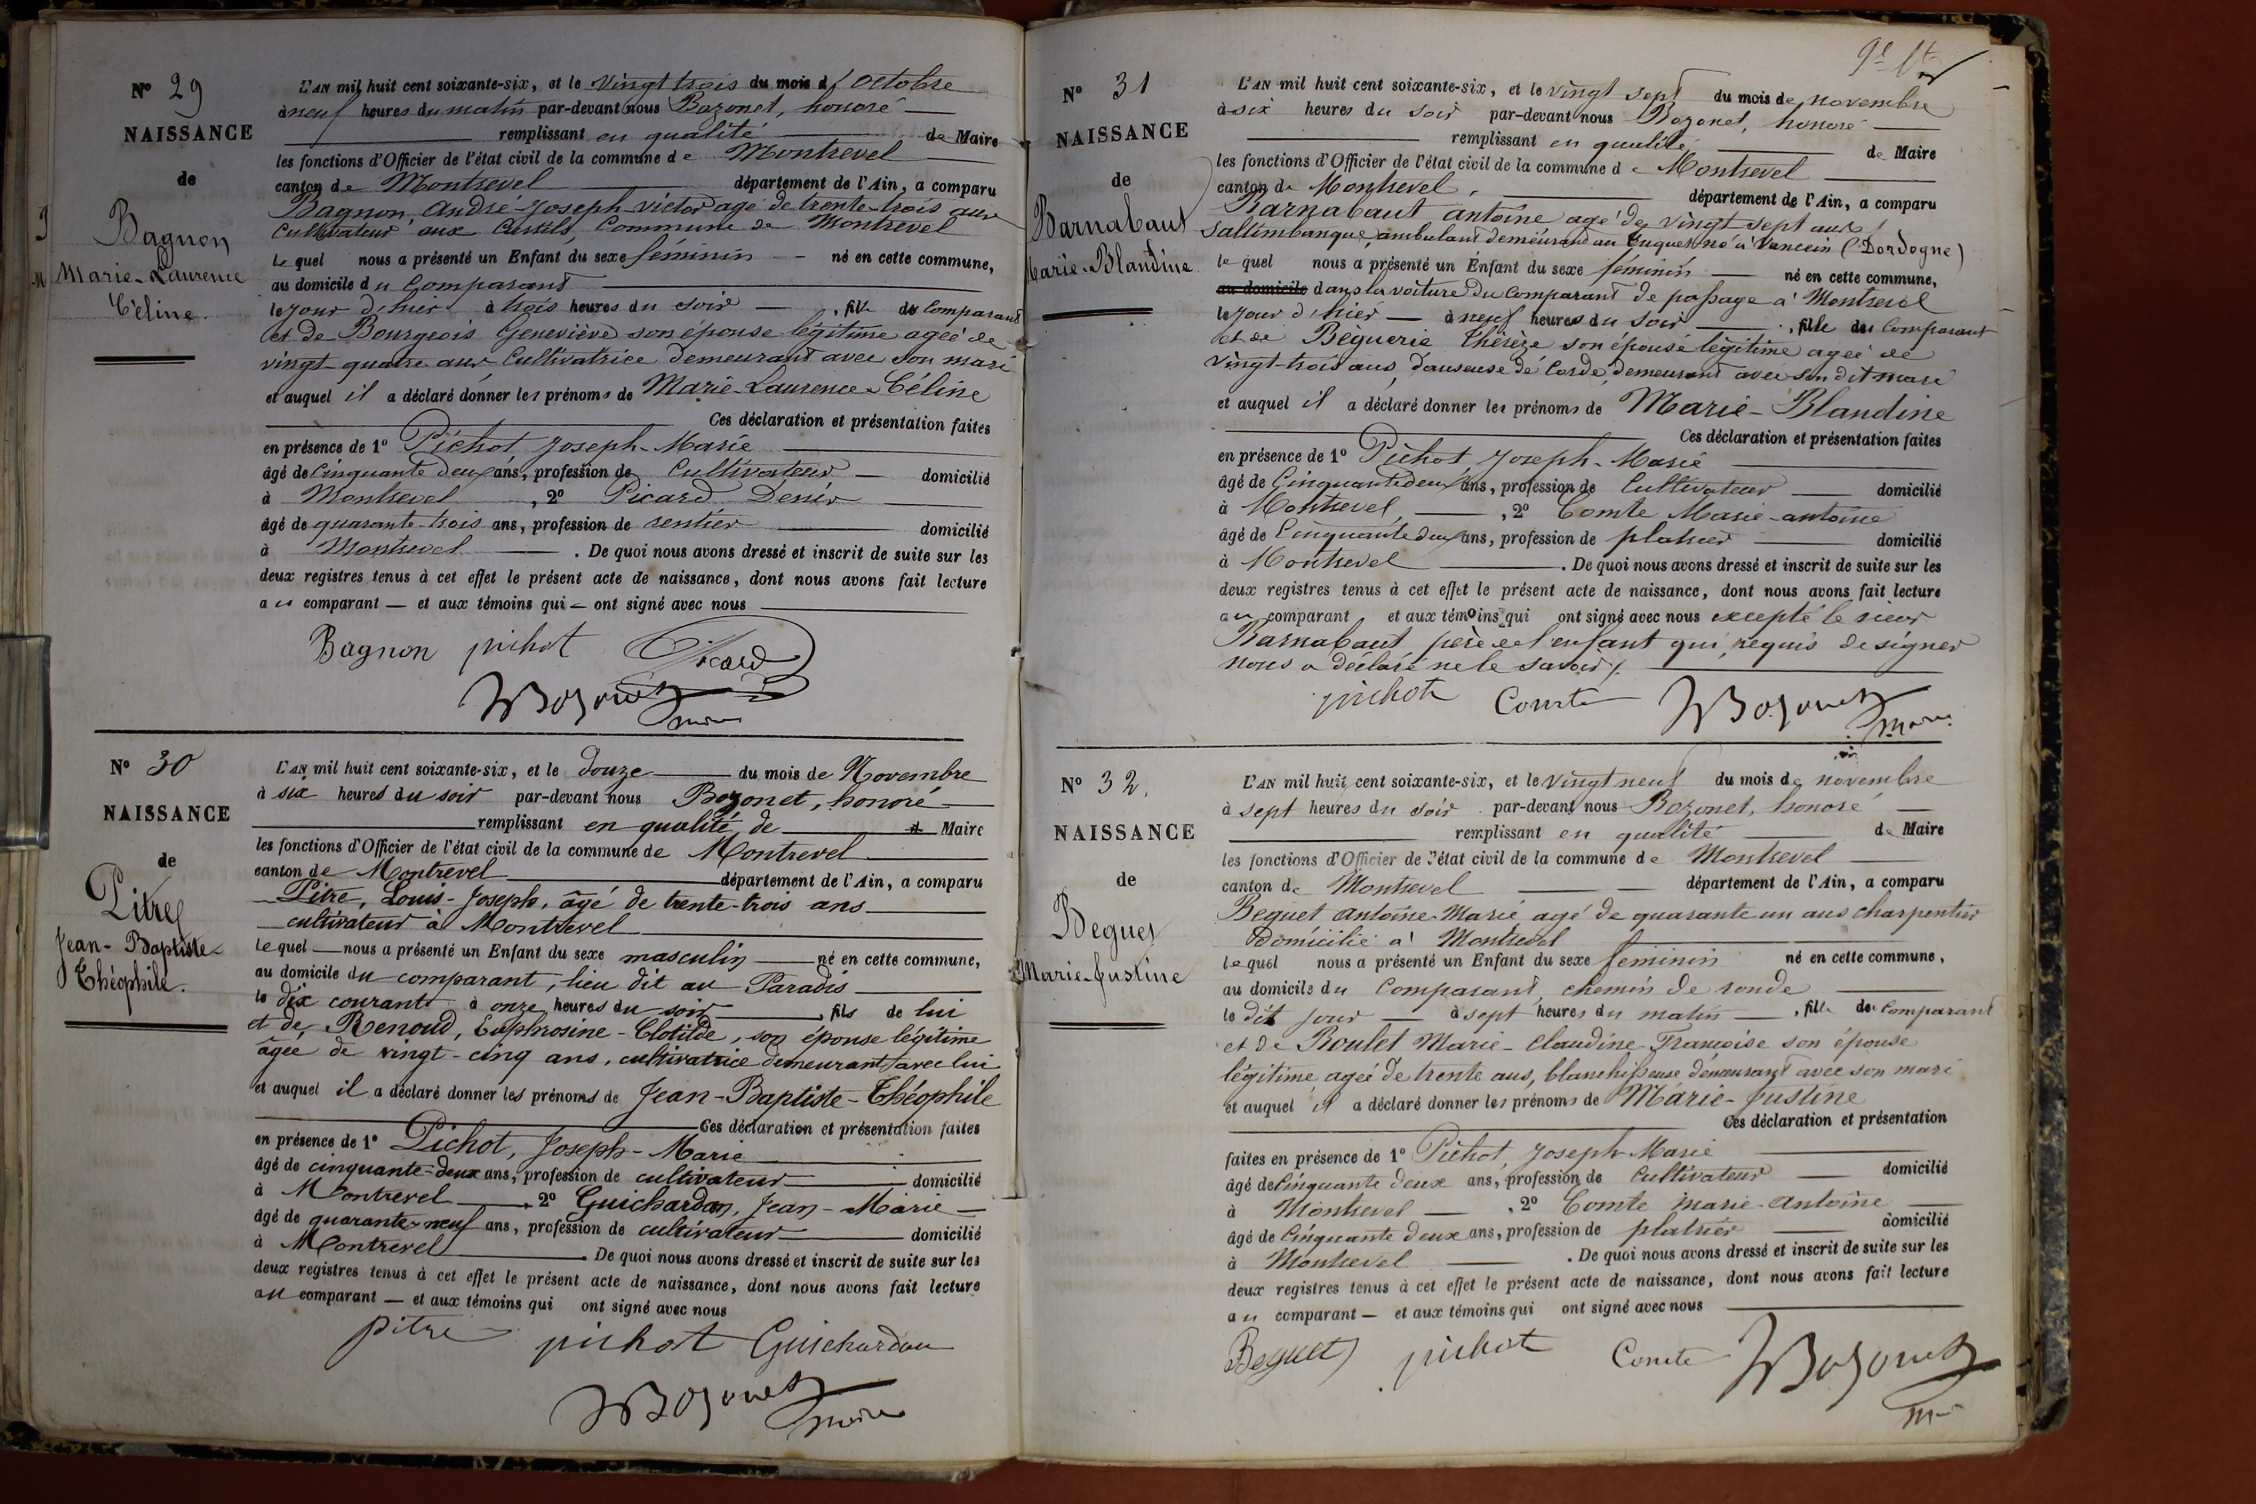 Nº 29
NAISSANCE
de
Bagnon
Marie-Laurence
Céline.
L'AN mil huit cent soixante-six, et le vingt trois du mois d'octobre
à neuf heures du matin par-devant nous Bozonet, honoré
remplissant en qualité de Maire
les fonctions d'Officier de l'état civil de la commune de Montrevel
canton de Montrevel département de l'Ain, a comparu
Bagnon, André-Joseph-victor agé de trente-trois ans
Cultivateur aux Commune de Montrevel
lequel nous a présenté un Enfant du sexe féminin né en cette commune,
au domicile du Comparant
le jour d'hier à trois heures du soir, fille du Comparant
et de Bourgeois Geneviève son épouse légitime agée de
vingt-quatre ans Cultivatrice demeurant avec son mari
et auquel il a déclaré donner les prénoms de Marie-Laurence-Céline
Ces déclaration et présentation faites
en présence de 1º Pichot, Joseph-Marie
âgé de Cinquante deux ans, profession de Cultivateur domicilié
à Montrevel, 2º Picard Denis
âgé de quarante-trois ans, profession de rentier domicilié
à Montrevel. De quoi nous avons dressé et inscrit de suite sur les
deux registres tenus à cet effet le présent acte de naissance, dont nous avons fait lecture
au comparant — et aux témoins qui — ont signé avec nous
Bagnon pichot Picard
Bozonet
maire
Nº 30
NAISSANCE
de
Pitre
Jean-Baptiste-
Théophile.
L'AN mil huit cent soixante-six, et le douze du mois de Novembre
à six heures du soir par-devant nous Bozonet, honoré
remplissant en qualité de Maire
les fonctions d'Officier de l'état civil de la commune de Montrevel
canton de Montrevel département de l'Ain, a comparu
Pitre, Louis-Joseph, âgé de trente-trois ans
cultivateur à Montrevel
lequel nous a présenté un Enfant du sexe masculin né en cette commune,
au domicile du comparant, lieu dit au Paradis
le dix courant à onze heures du soir, fils de lui
et de Renoud, Euphrosine-Clotilde, son épouse légitime
âgée de vingt-cinq ans, cultivatrice demeurant avec lui
et auquel il a déclaré donner les prénoms de Jean-Baptiste-Théophile
Ces déclaration et présentation faites
en présence de 1º Pichot, Joseph-Marie
âgé de cinquante-deux ans, profession de cultivateur domicilié
à Montrevel, 2º Guichardon, Jean-Marie
âgé de quarante-neuf ans, profession de cultivateur domicilié
à Montrevel. De quoi nous avons dressé et inscrit de suite sur les
deux registres tenus à cet effet le présent acte de naissance, dont nous avons fait lecture
au comparant — et aux témoins qui ont signé avec nous
pitre pichot Guichardon
Bozonet
maire
Nº 31
NAISSANCE
de
Barnabaut
Marie-Blandine
L'AN mil huit cent soixante-six, et le vingt sept du mois de novembre
à six heures du soir par-devant nous Bozonet, honoré
remplissant en qualité de Maire
les fonctions d'Officier de l'état civil de la commune de Montrevel
canton de Montrevel, département de l'Ain, a comparu
Barnabaut antoine agé de vingt sept ans
saltimbanque, ambulant demeurant au né à (Dordogne)
lequel nous a présenté un Enfant du sexe féminin né en cette commune,
au domicile dans la voiture du Comparant de passage à Montrevel
le jour d'hier à neuf heures du soir, fille du Comparant
et de Béguerie Thérèze son épouse légitime agée de
vingt-trois ans, danseuse de Corde, demeurant avec son dit mari
et auquel il a déclaré donner les prénoms de Marie-Blandine
Ces déclaration et présentation faites
en présence de 1º Pichot Joseph-Marie
âgé de Cinquante deux ans, profession de Cultivateur domicilié
à Montrevel, 2º Comte Marie-antoine
âgé de Cinquante deux ans, profession de platrier domicilié
à Montrevel. De quoi nous avons dressé et inscrit de suite sur les
deux registres tenus à cet effet le présent acte de naissance, dont nous avons fait lecture
au comparant et aux témoins qui ont signé avec nous excepté le sieur
Barnabaut père de l'enfant qui, requis de signer
nous a déclaré ne le savoir.
pichot Comte Bozonet
maire
Nº 32.
NAISSANCE
de
Beguet
Marie-Justine
L'AN mil huit cent soixante-six, et le vingt neuf du mois de novembre
à sept heures du soir par-devant nous Bozonet, honoré
remplissant en qualité de Maire
les fonctions d'Officier de l'état civil de la commune de Montrevel
canton de Montrevel département de l'Ain, a comparu
Beguet antoine-Marie agé de quarante un ans charpentier
domicilié à Montrevel
lequel nous a présenté un Enfant du sexe féminin né en cette commune,
au domicile du Comparant, chemin de ronde
le dit jour à sept heures du matin, fille du Comparant
et de Boulet Marie-Claudine-Françoise son épouse
légitime agée de trente ans, blanchisseuse demeurant avec son mari
et auquel il a déclaré donner les prénoms de Marie-Justine
Ces déclaration et présentation
faites en présence de 1º Pichot, Joseph-Marie
âgé de Cinquante deux ans, profession de Cultivateur domicilié
à Montrevel, 2º Comte Marie-Antoine
âgé de Cinquante deux ans, profession de platrier domicilié
à Montrevel. De quoi nous avons dressé et inscrit de suite sur les
deux registres tenus à cet effet le présent acte de naissance, dont nous avons fait lecture
au comparant — et aux témoins qui ont signé avec nous
Beguet pichot Comte Bozonet